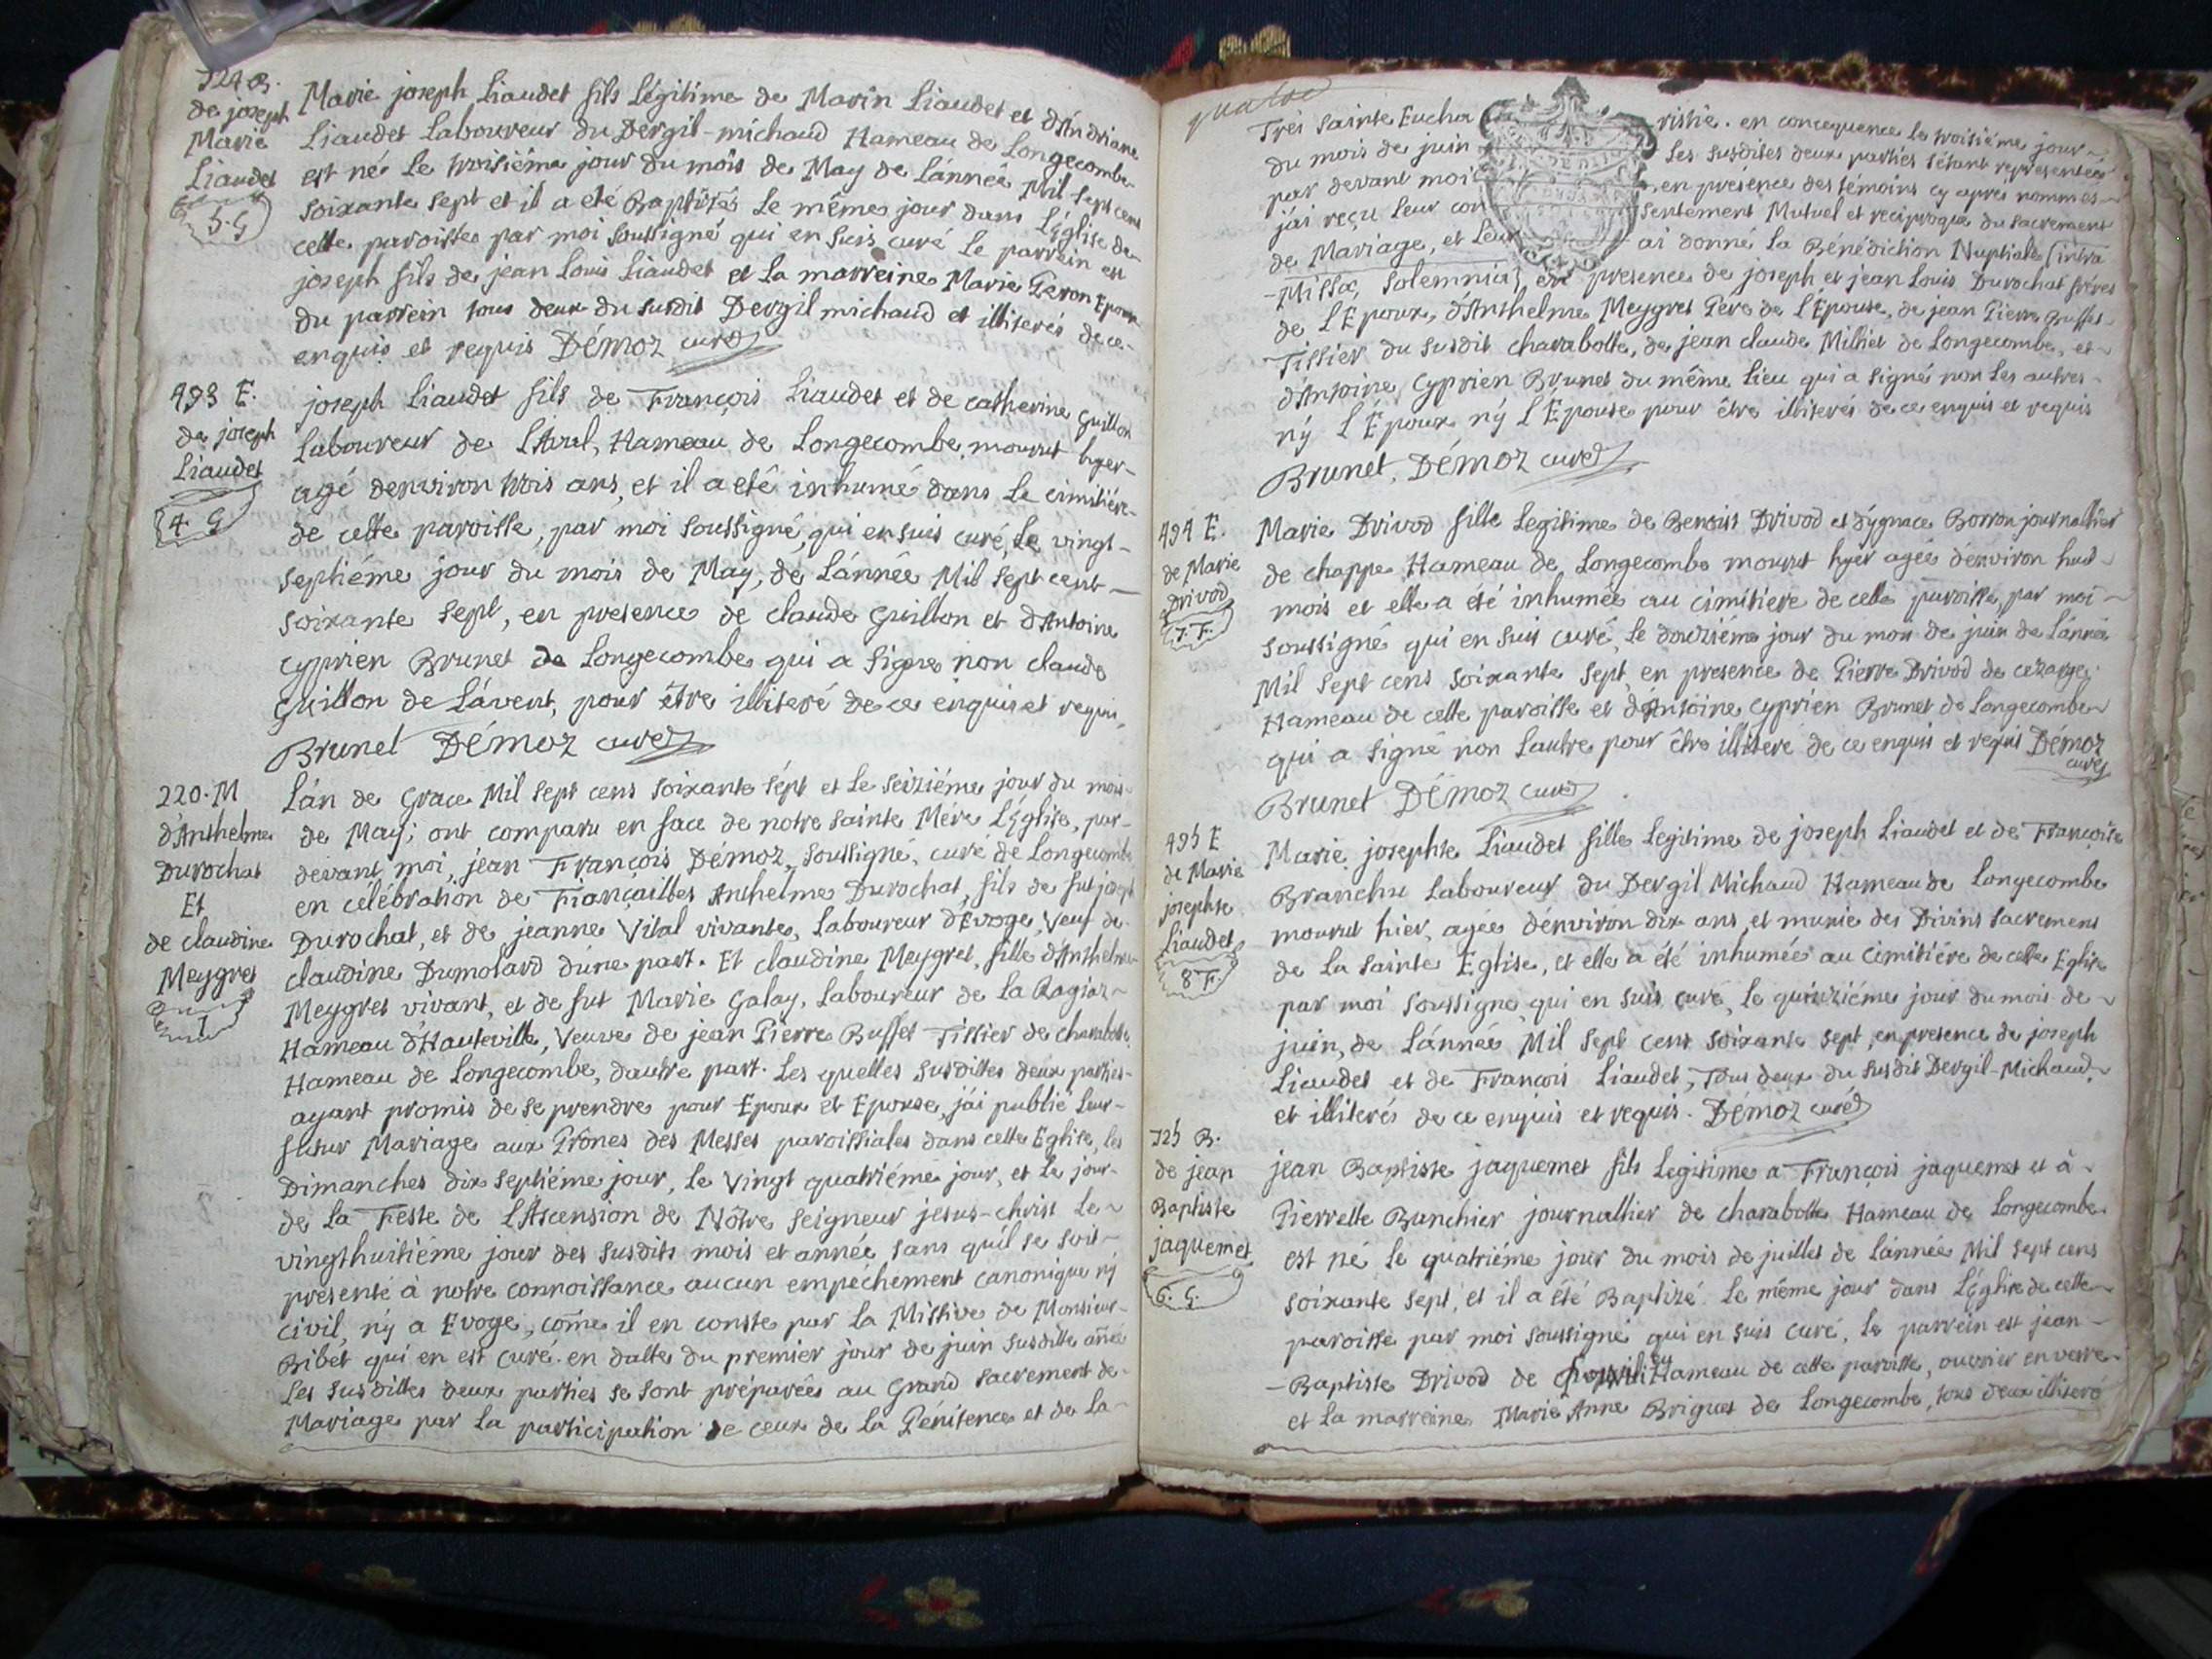 724 B.
de joseph
Marie
Liaudet
5. G
Marie joseph Liaudet fils Légitime de Marin Liaudet et d'Andriane
Liaudet Laboureur du Dergil-michaud Hameau de Longecombe
est né le troisiéme jour du mois de May de L'année Mil sept cens
soixante sept et il a eté Baptisé Le même jour dans L'église de
cette paroisse par moi soussigné qui en suis curé Le parrein est
joseph fils de jean Louis Liaudet et La marreine Marie Peron Epouse
du parrein tous deux du susdit Dergil michaud et illiterés de ce
enquis et requis Démoz curé
493 E.
de joseph
Liaudet
4. G
joseph Liaudet fils de François Liaudet et de catherine Guillon
Laboureur de Hameau de Longecombe mourut hyer
agé denviron trois ans, et il a eté inhumé dans Le cimitiére
de cette paroisse, par moi soussigné, qui en suis curé, Le vingt-
septiéme jour du mois de May, de L'année Mil sept cent
soixante sept, en presence de claude Guillon et d'Antoine
cyprien Brunet de Longecombe qui a signé non claude
Guillon de L'avent, pour être illiteré de ce enquis et requis,
Brunet Démoz curé
220. M
d'Anthelme
Durochat
Et
de claudine
Meygret
1
L'án de Grace Mil sept cens soixante sept et Le seiziéme jour du mois
de May; ont comparu en face de notre sainte Mére L'église, par-
devant moi, jean François Démoz, soussigné, curé de Longecombe
en célébration de Fiançailles Anthelme Durochat, fils de fut joseph
Durochat, et de jeanne Vital vivante, Laboureur d'Evoge, Veuf de
claudine Dumolard d'une part. Et claudine Meygret, fille d'Anthelme
Meygret vivant, et de fut Marie Galay, Laboureur de La Ragiaz
Hameau d'Hauteville, Veuve de jean Pierre Buffet-Tissier de charabotte
Hameau de Longecombe, dautre part. Les quelles susdittes deux parties
ayant promis de se prendre pour Epoux et Epouse, j'ai publié Leur
futur Mariage aux Prônes des Messes paroissiales dans cette Eglise, les
Dimanches dix septiéme jour, Le vingt quatriéme jour, et Le jour
de La Feste de L'Ascension de Nôtre seigneur jesus-christ Le
vingthuitiéme jour des susdits mois et année sans qu'il se soit
presenté à notre connoissance aucun empéchement canonique ny
civil, ny a Evoge, come il en conste par La Missive de Monsieur
Ribet qui en est curé. en datte du premier jour de juin susditte année
Les susdittes deux parties se sont préparées au Grand sacrement de
Mariage par La participation de ceux de La Pénitence et de La
quatre
Trés sainte Eucharistie. en concequence Le troisiéme jour
du mois de juin Les susdites deux parties s'étant representées
par devant moi, en présence des témoins cy aprés nommés
j'ai reçu Leur consentement Mutuel et reciproque du sacrement
de Mariage, et Leur ai donné La Bénédiction Nuptiale (intra
-Missæ solemnia) en presence de joseph et jean Louis Durochat fréres
de L'Epoux, d'Anthelme Meygret Pére de L'Epouse, de jean Pierre Buffet-
Tissier du susdit charabotte, de jean claude Milliet de Longecombe, et
d'Antoine Cyprien Brunet du même Lieu qui a signé non Les autres
ny L'Epoux ny L'Epouse pour être illiterés de ce enquis et requis
Brunet. Démoz curé
494 E.
de Marie
Drivod
7. F.
Marie Drivod fille Legitime de Benoist Drivod et d'ygnace Borron journallier
de chappe Hameau de Longecombe mourut hyér agée d'environ huit
mois et elle a été inhumée au cimitiere de cette paroisse, par moi
soussigné qui en suis curé, Le douziéme jour du mois de juin de L'année
Mil sept cens soixante sept en presence de Pierre Drivod de cezarge
Hameau de cette paroisse et d'Antoine cyprien Brunet de Longecombe
qui a signé non Lautre pour être illiteré de ce enquis et requis Démoz
curé
Brunet Démoz curé
495 E
de Marie
josephte
Liaudet
8 F.
Marie josephte Liaudet fille Legitime de joseph Liaudet et de Françoise
Branche Laboureur du Dergil Michaud Hameau de Longecombe
mourut hier, agée d'environ dix ans, et munie des Divins sacremens
de La sainte Eglise, et elle a été inhumée au cimitiére de cette Eglise
par moi soussigné qui en suis curé, Le quinziéme jour du mois de
juin, de L'année Mil sept cens soixante sept, en presence de joseph
Liaudet et de François Liaudet, Tous deux du susdit Dergil-Michaud,
et illiterés de ce enquis et requis. Démoz curé
725 B.
de jean
Baptiste
jaquemet
6. G.
jean Baptiste jaquemet fils Legitime a François jaquemet et à
Pierrette Bunchier journallier de charabotte Hameau de Longecombe
est né Le quatriéme jour du mois de juillet de L'année Mil sept cens
soixante sept, et il a été Baptizé Le même jour dans L'église de cette
paroisse par moi soussigné qui en suis curé, Le parrein est jean-
-Baptiste Drivod de Hameau de cette paroisse, ouvrier en verre
et La marreine Marie Anne Brigues de Longecombe, tous deux illiteré